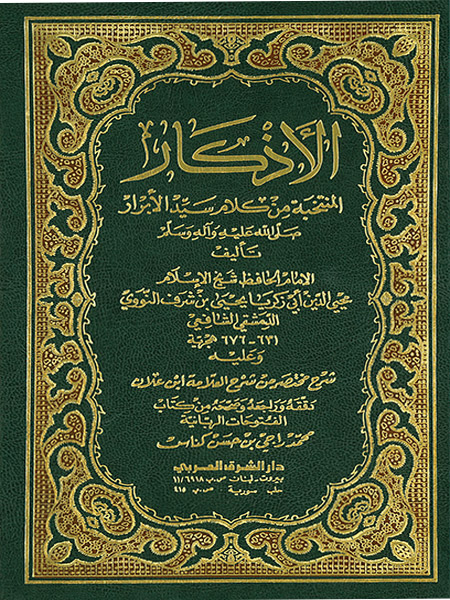 الأذكار
المنتخبة من كلام سيد الأبرار
صلى الله عليه وآله وسلم
تأليف
الإمام الحافظ شيخ الإسلام
محيي الدين أبي زكريا يحيى بن شرف النووي
الدمشقي الشافعي
٦٣١ - ٦٧٦ هجرية
وعليه
شرح مختصر من شرح العلامة ابن علان
دققه وراجعه وصححه من كتاب
الفتوحات الربانية
محمد راجي بن حسن كناس
دار الشرق العربي
بيروت - لبنان ص.ب ١١/٦٩١٨
حلب سورية ص.ب ٤١٥